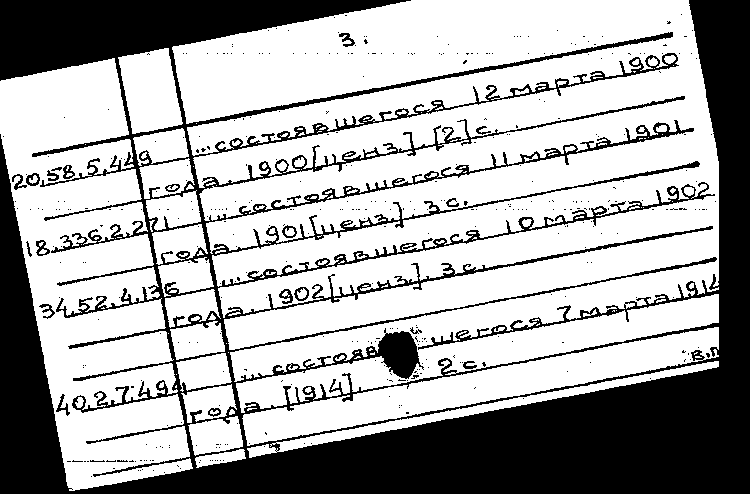 3.
20.58.5.449 ...состоявшегося 12 марта 1900
года. 1900[ценз.]. [2]с.
18.336.2.271 ... состоявшегося 11 марта 1901
года. 1901[ценз.]. 3с.
34.52.4.136 ...состоявшегося 10 марта 1902
года. 1902[ценз.]. 3с.
40.2.7.494 ... состояв шегося 7 марта 1914
года. [1914]. 2с.